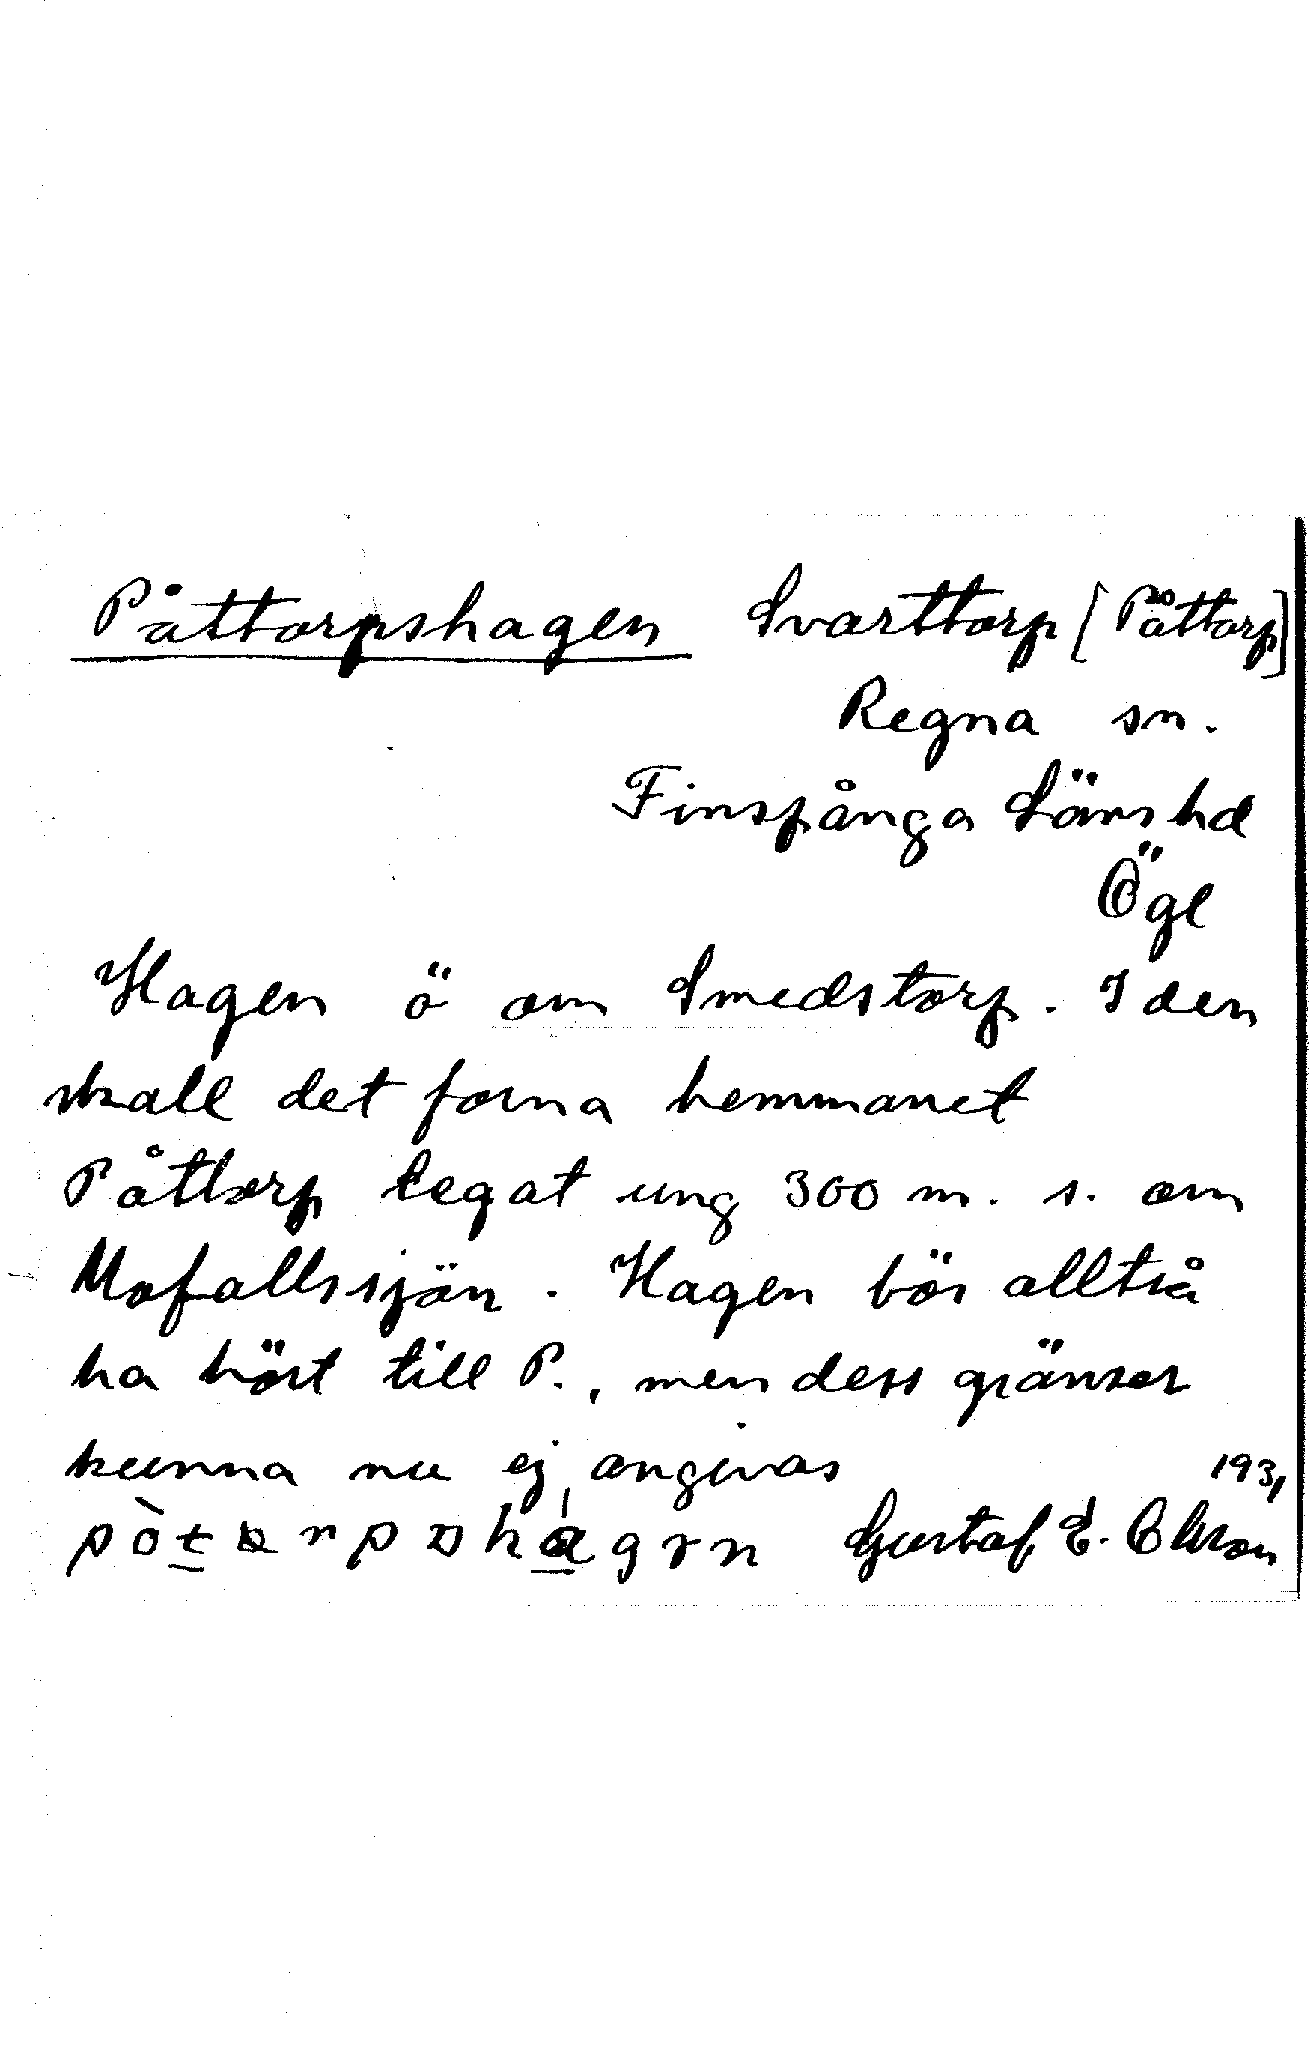 Påttorpshagen Svarttorp [Påttorp]
Regna sn.
Finspånga Länshd
Ögl
Hagen ö om Smedstorp. I den
skall det forna hemmanet
Påttorp legat ung 300 m. s. om
Mofallssjön. Hagen bör alltså
ha hört till P., men dess gränser
kunna nu ej angivas 1931
Gustaf E. Olsson